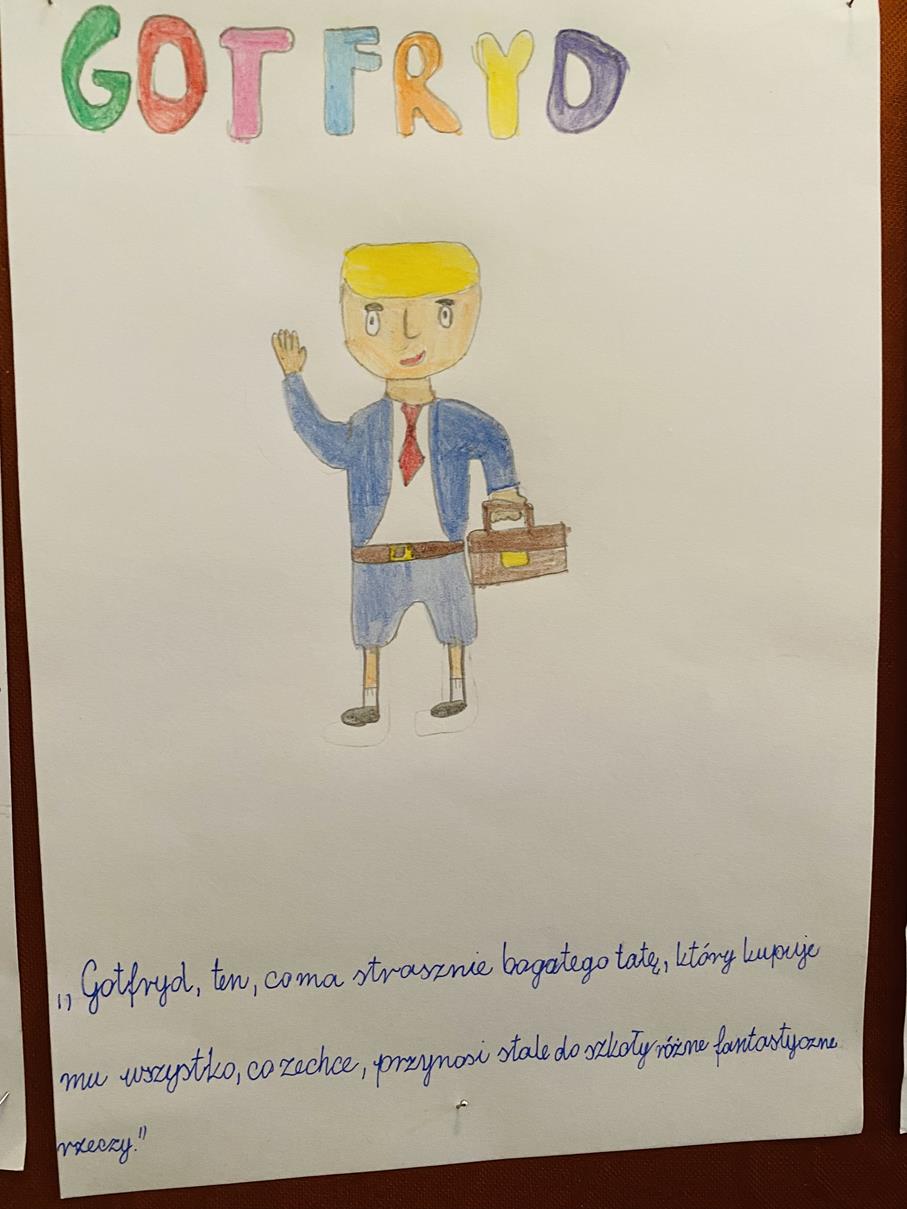 GOTFRYD
„Gotfryd, ten, co ma strasznie bogatego tatę, który kupuje
mu wszystko, co zechce, przynosi stale do szkoły różne fantastyczne
rzeczy."